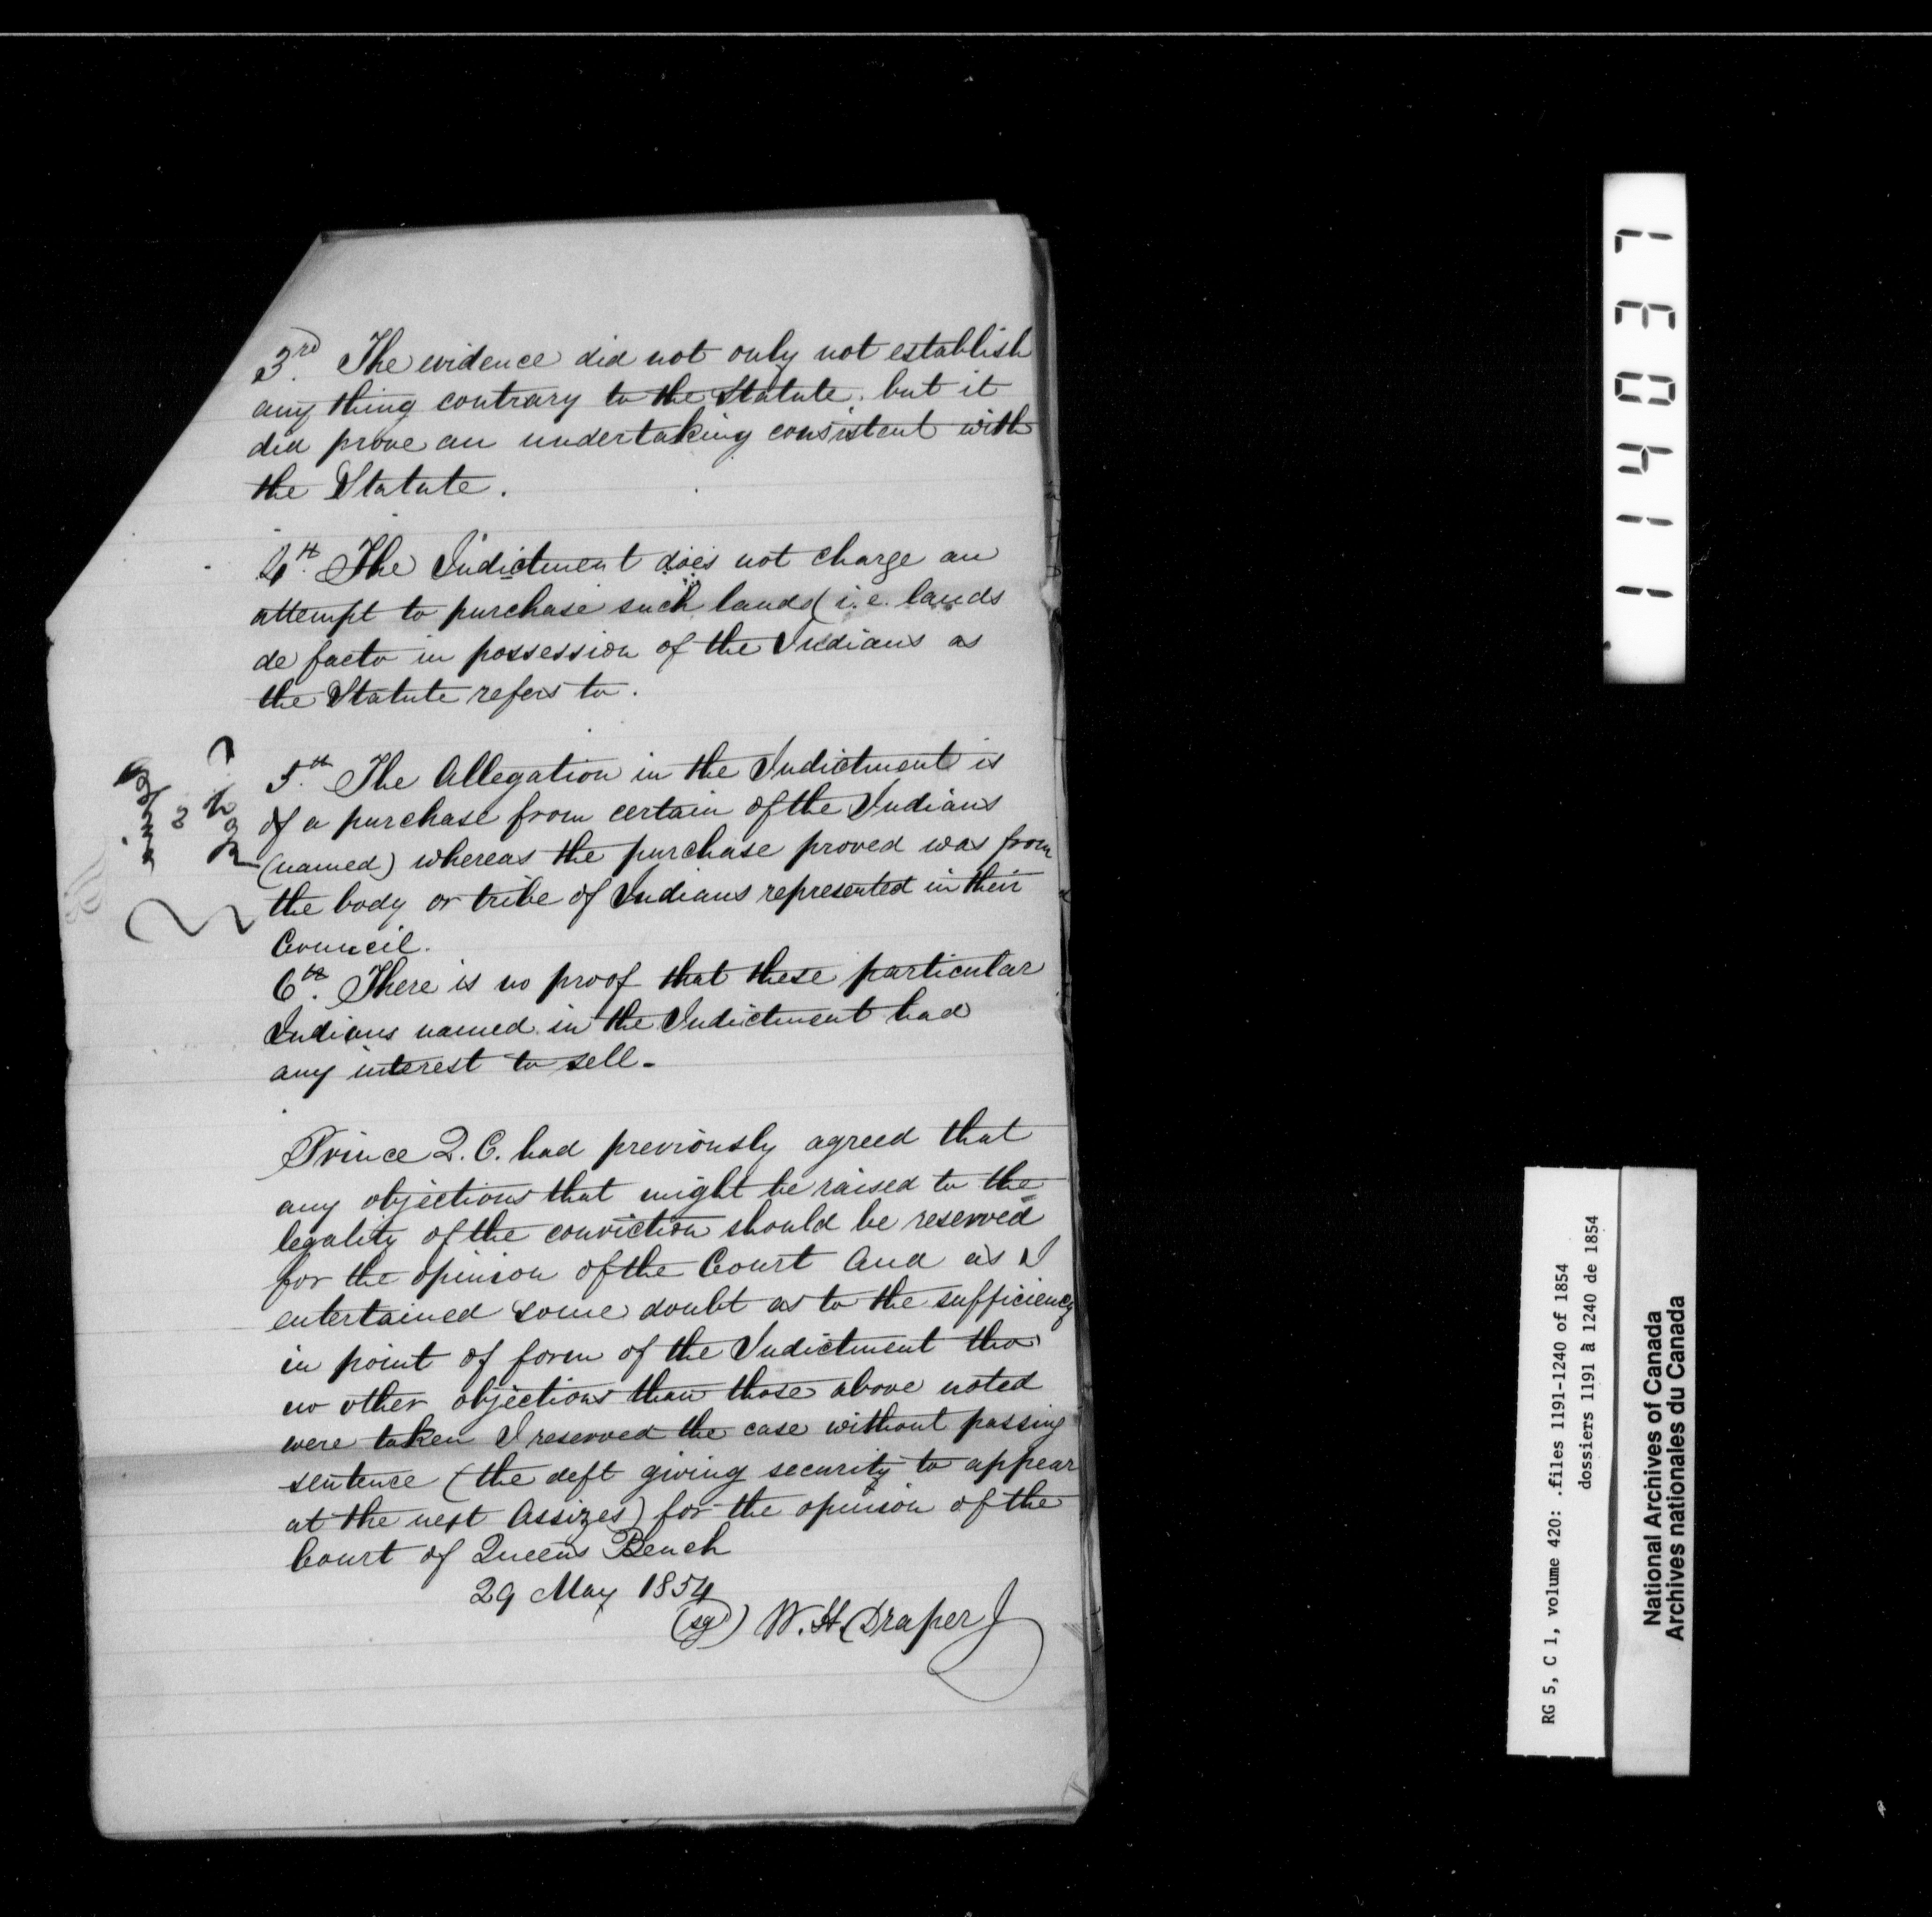 3rd. The evidence did not only not establish
any thing contrary to the Statute. but it
did prove an undertaking consistent with
the Statute.
4th. The Indictment does not charge an
attempt to purchase such lands (i.e. lands
de facto in possession of the Indians as
the Statute refers to.
5.th The Allegation in the Indictment is
of a purchase from certain of the Indians
(named) whereas the purchase proved was from
the body or tribe of Indians represented in their
Council.
6th. There is no proof that these particular
Indians named in the Indictment had
any interest to sell.
Prince Q.C. had previously agreed that
any objections that might be raised to the
legality of the conviction should be reserved
for the opinion of the Court And as I
entertained some doubt as to the sufficiency
in point of form of the Indictment tho
no other objections than those above noted
were taken I reserved the case without passing
sentence (the deft giving security to appear
at the next Assizes) for the opinion of the
Court of Queens Bench
29 May 1854
(sgd) W. H. Draper J
114037
RG 5, C 1, volume 420: .files 1191-1240 of 1854
dossiers 1191 à 1240 de 1854
National Archives of Canada
Archives nationales du Canada